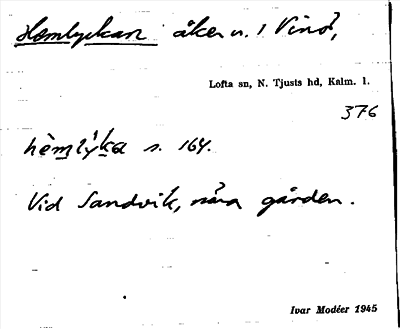 Hemlyckan åker n. 1 Vinö,
Lofta sn, N. Tjusts hd, Kalm. l.
376
hèmlýka s. 164.
Vid Sandvik, nära gården.
Ivar Modéer 1945